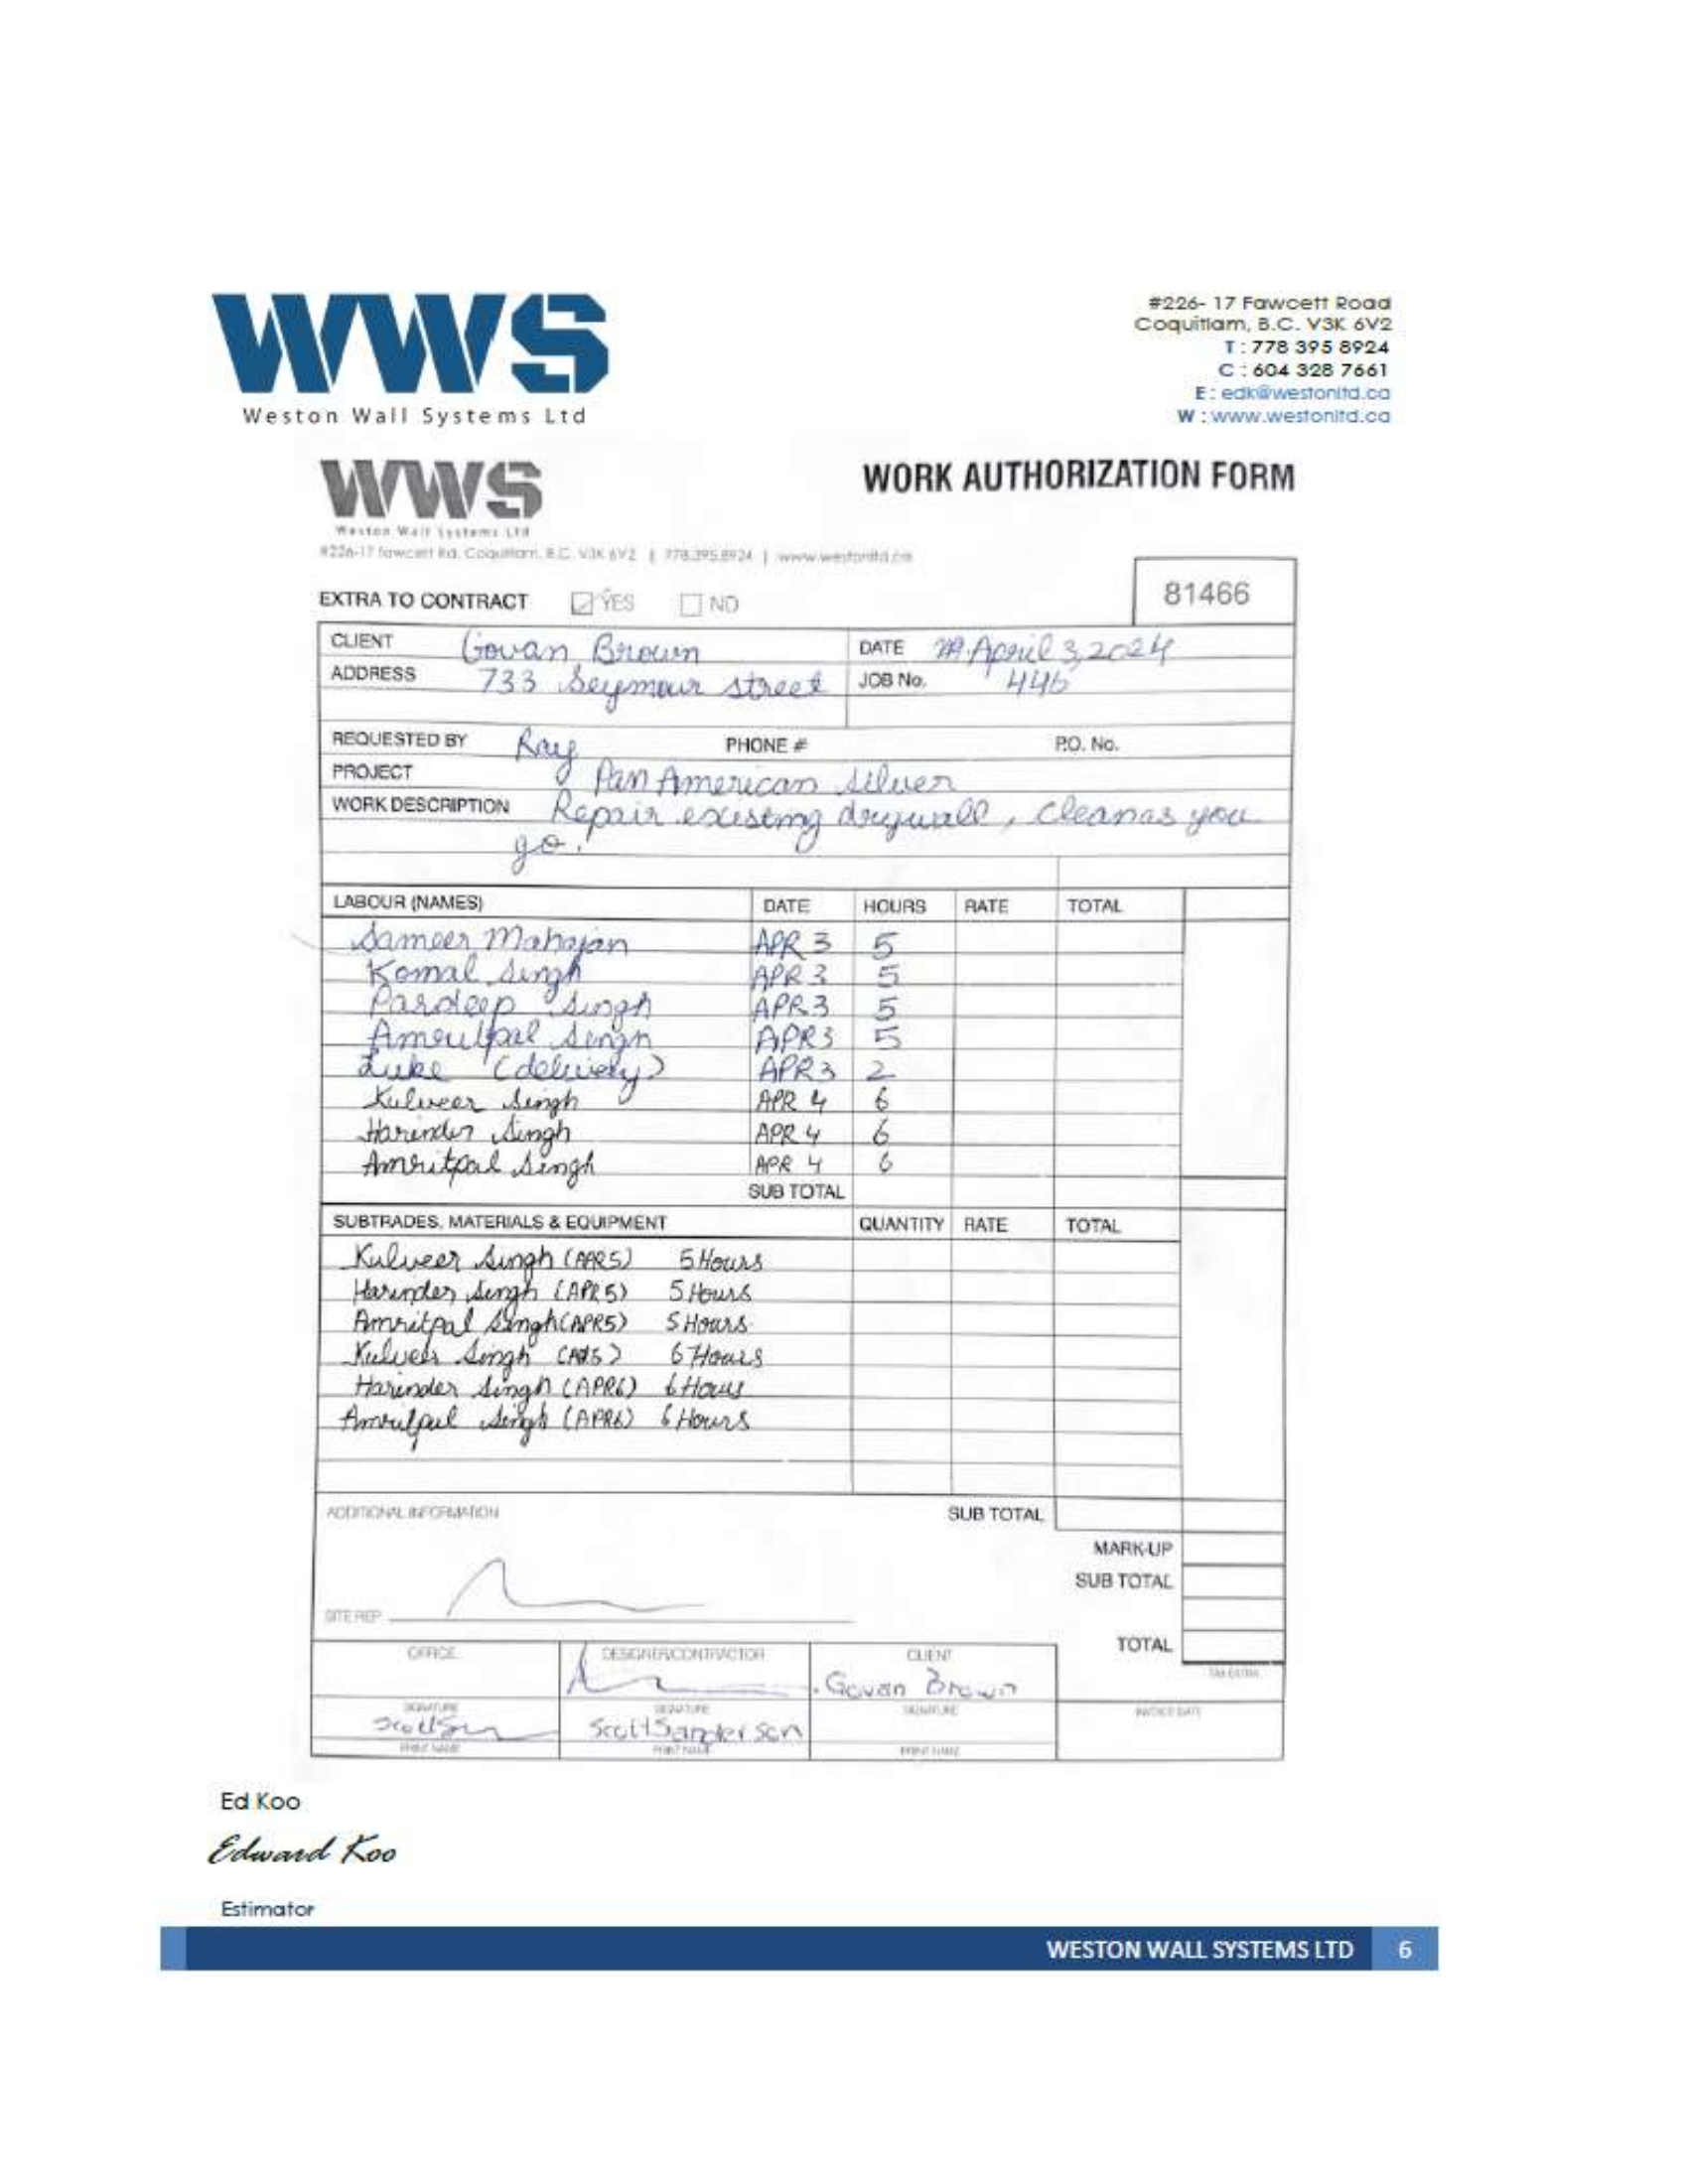 WWS
Weston Wall Systems Ltd
#226- 17 Fawcett Road
Coquitlam, B.C. V3K 6V2
T : 778 395 8924
C : 604 328 7661
E : edk@westonltd.ca
W : www.westonltd.ca
WWS
Weston Wall Systems Ltd
#226-17 Fawcett Rd. Coquitlam, B.C. V3K 6V2 | 778.395.8924 | www.westonltd.ca
WORK AUTHORIZATION FORM
EXTRA TO CONTRACT YES NO
81466
CLIENT Govan Brown DATE April 3, 2024
ADDRESS 733 Seymour street JOB No. 446
REQUESTED BY Ray PHONE # P.O. No.
PROJECT Pan American Silver
WORK DESCRIPTION Repair existing drywall, cleanas you
go.
LABOUR (NAMES) DATE HOURS RATE TOTAL
Sameer Mahajan APR 3 5
Komal Singh APR 3 5
Pardeep Singh APR 3 5
Amritpal Singh APR 3 5
Luke (delivery) APR 3 2
Kulveer Singh APR 4 6
Harinder Singh APR 4 6
Amritpal Singh APR 4 6
SUB TOTAL
SUBTRADES, MATERIALS & EQUIPMENT QUANTITY RATE TOTAL
Kulveer Singh (APR5) 5 Hours
Harinder Singh (APR 5) 5 Hours
Amritpal Singh (APR5) 5 Hours
Kulveer Singh 6 Hours
Harinder Singh (APR6) 6 Hours
Amritpal Singh (APR6) 6 Hours
ADDITIONAL INFORMATION SUB TOTAL
MARK-UP
SUB TOTAL
SITE REP
TOTAL
TAX EXTRA
OFFICE DESIGNER/CONTRACTOR CLIENT
Govan Brown
SIGNATURE SIGNATURE SIGNATURE INVOICE DATE
Scott Sanderson
PRINT NAME PRINT NAME PRINT NAME
Ed Koo
Edward Koo
Estimator
WESTON WALL SYSTEMS LTD 6